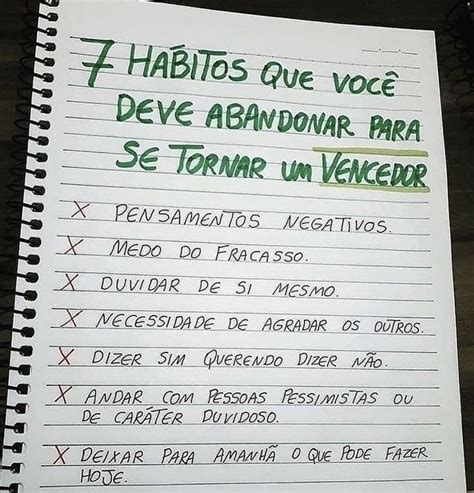 7 HÁBITOS QUE VOCÊ
DEVE ABANDONAR PARA
SE TORNAR UM VENCEDOR
X PENSAMENTOS NEGATIVOS.
X MEDO DO FRACASSO.
X DUVIDAR DE SI MESMO.
X NECESSIDADE DE AGRADAR OS OUTROS.
X DIZER SIM QUERENDO DIZER NÃO.
X ANDAR COM PESSOAS PESSIMISTAS OU
DE CARÁTER DUVIDOSO.
X DEIXAR PARA AMANHÃ O QUE PODE FAZER
HOJE.